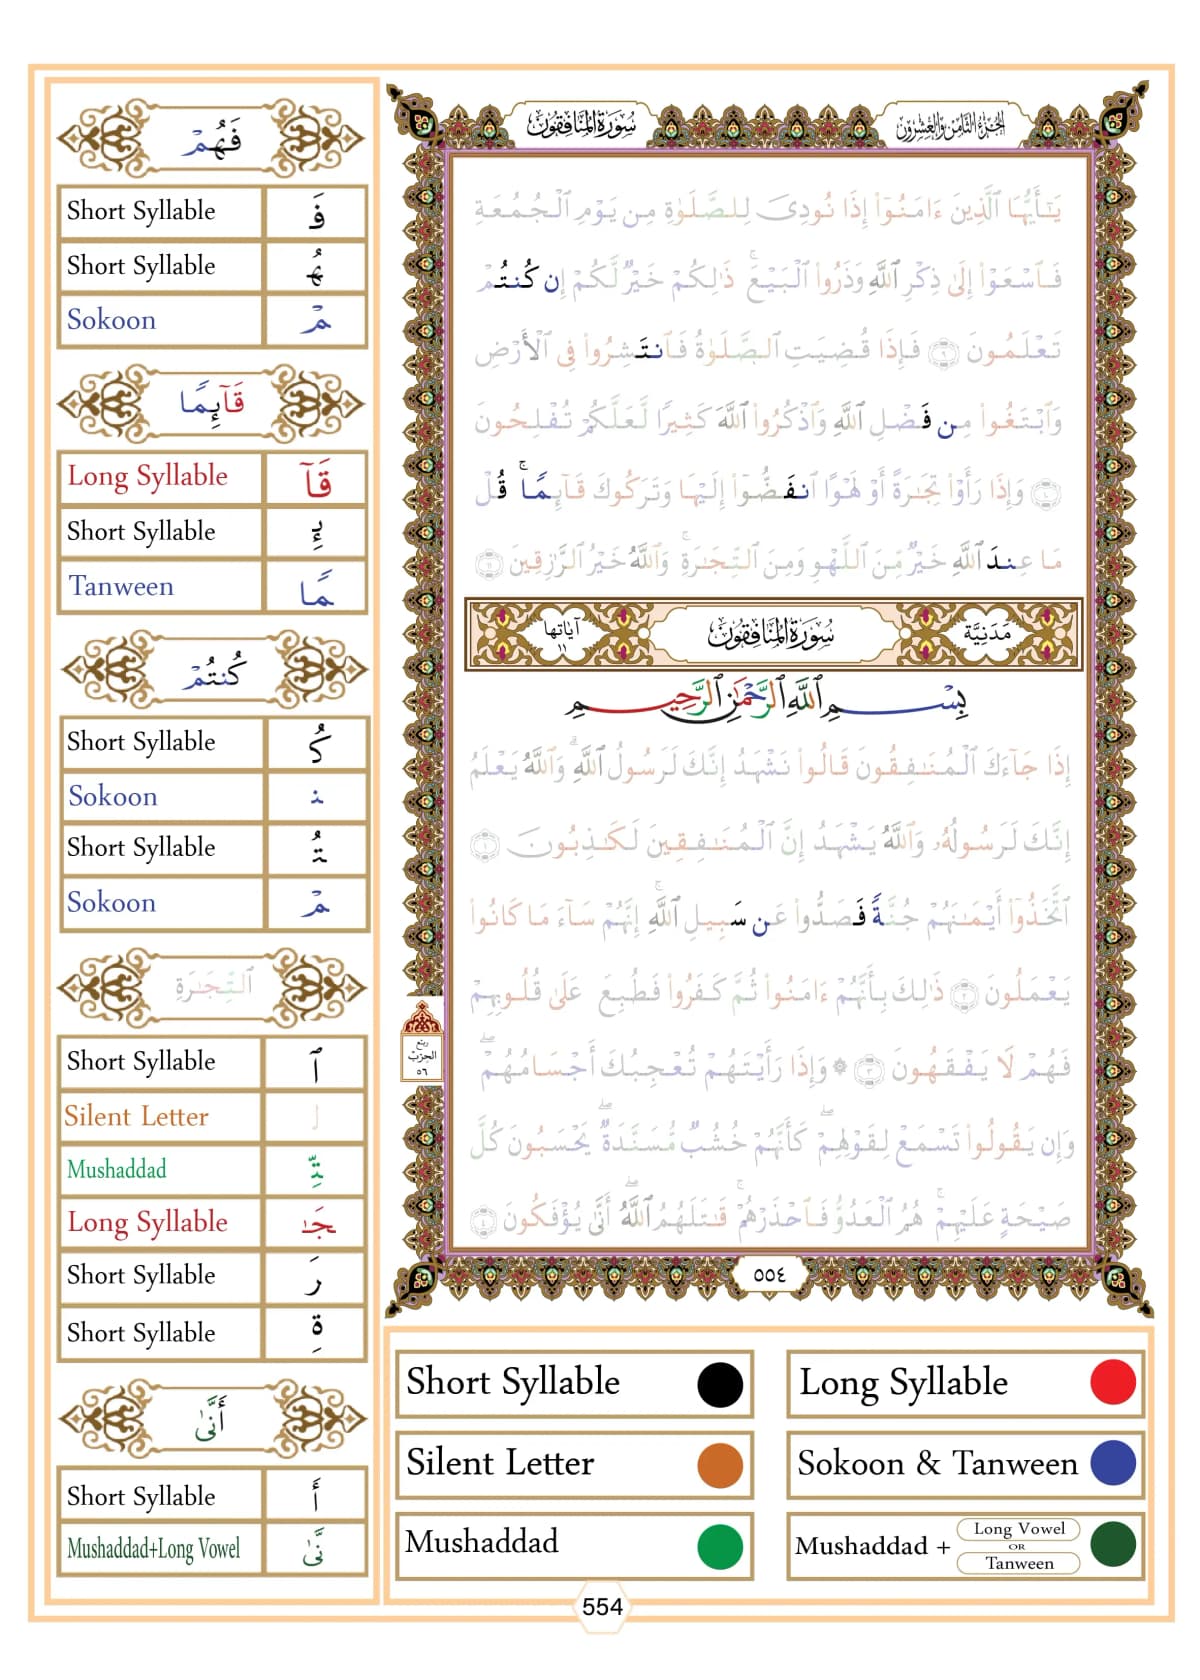 سورة المنافقون
الجزء الثامن والعشرون
يَٰٓأَيُّهَا ٱلَّذِينَ ءَامَنُوٓا۟ إِذَا نُودِىَ لِلصَّلَوٰةِ مِن يَوْمِ ٱلْجُمُعَةِ
فَٱسْعَوْا۟ إِلَىٰ ذِكْرِ ٱللَّهِ وَذَرُوا۟ ٱلْبَيْعَ ۚ ذَٰلِكُمْ خَيْرٌ لَّكُمْ إِن كُنتُمْ
تَعْلَمُونَ ٩ فَإِذَا قُضِيَتِ ٱلصَّلَوٰةُ فَٱنتَشِرُوا۟ فِى ٱلْأَرْضِ
وَٱبْتَغُوا۟ مِن فَضْلِ ٱللَّهِ وَٱذْكُرُوا۟ ٱللَّهَ كَثِيرًا لَّعَلَّكُمْ تُفْلِحُونَ
١٠ وَإِذَا رَأَوْا۟ تِجَٰرَةً أَوْ لَهْوًا ٱنفَضُّوٓا۟ إِلَيْهَا وَتَرَكُوكَ قَآئِمًا ۚ قُلْ
مَا عِندَ ٱللَّهِ خَيْرٌ مِّنَ ٱللَّهْوِ وَمِنَ ٱلتِّجَٰرَةِ ۚ وَٱللَّهُ خَيْرُ ٱلرَّٰزِقِينَ ١١
مَدَنِيَّة
سُورَةُ المُنَافِقُونَ
آياتها ١١
بِسْمِ ٱللَّهِ ٱلرَّحْمَٰنِ ٱلرَّحِيمِ
إِذَا جَآءَكَ ٱلْمُنَٰفِقُونَ قَالُوا۟ نَشْهَدُ إِنَّكَ لَرَسُولُ ٱللَّهِ ۗ وَٱللَّهُ يَعْلَمُ
إِنَّكَ لَرَسُولُهُۥ وَٱللَّهُ يَشْهَدُ إِنَّ ٱلْمُنَٰفِقِينَ لَكَٰذِبُونَ ١
ٱتَّخَذُوٓا۟ أَيْمَٰنَهُمْ جُنَّةً فَصَدُّوا۟ عَن سَبِيلِ ٱللَّهِ ۚ إِنَّهُمْ سَآءَ مَا كَانُوا۟
يَعْمَلُونَ ٢ ذَٰلِكَ بِأَنَّهُمْ ءَامَنُوا۟ ثُمَّ كَفَرُوا۟ فَطُبِعَ عَلَىٰ قُلُوبِهِمْ
فَهُمْ لَا يَفْقَهُونَ ٣ ۞ وَإِذَا رَأَيْتَهُمْ تُعْجِبُكَ أَجْسَامُهُمْ ۖ
وَإِن يَقُولُوا۟ تَسْمَعْ لِقَوْلِهِمْ ۖ كَأَنَّهُمْ خُشُبٌ مُّسَنَّدَةٌ ۖ يَحْسَبُونَ كُلَّ
صَيْحَةٍ عَلَيْهِمْ ۚ هُمُ ٱلْعَدُوُّ فَٱحْذَرْهُمْ ۚ قَٰتَلَهُمُ ٱللَّهُ ۖ أَنَّىٰ يُؤْفَكُونَ ٤
ربع
الحزب
٥٦
٥٥٤
فَهُمْ
Short Syllable فَ
Short Syllable هُ
Sokoon مْ
قَآئِمًا
Long Syllable قَآ
Short Syllable ئِ
Tanween مًا
كُنتُمْ
Short Syllable كُ
Sokoon ن
Short Syllable تُ
Sokoon مْ
ٱلتِّجَٰرَةِ
Short Syllable ٱ
Silent Letter ل
Mushaddad تِّ
Long Syllable جَٰ
Short Syllable رَ
Short Syllable ةِ
أَنَّىٰ
Short Syllable أَ
Mushaddad+Long Vowel نَّىٰ
Short Syllable
Long Syllable
Silent Letter
Sokoon & Tanween
Mushaddad
Mushaddad + Long Vowel OR Tanween
554